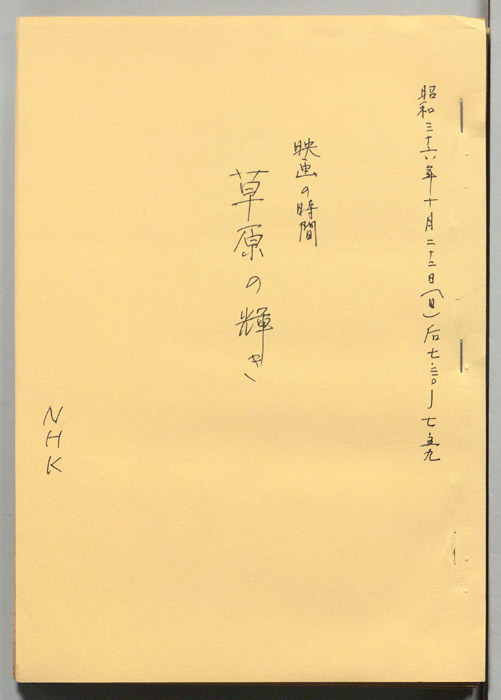 昭和三十六年十月二十二日(日)后七.三〇〜七.五九
映画の時間
草原の輝き
NHK